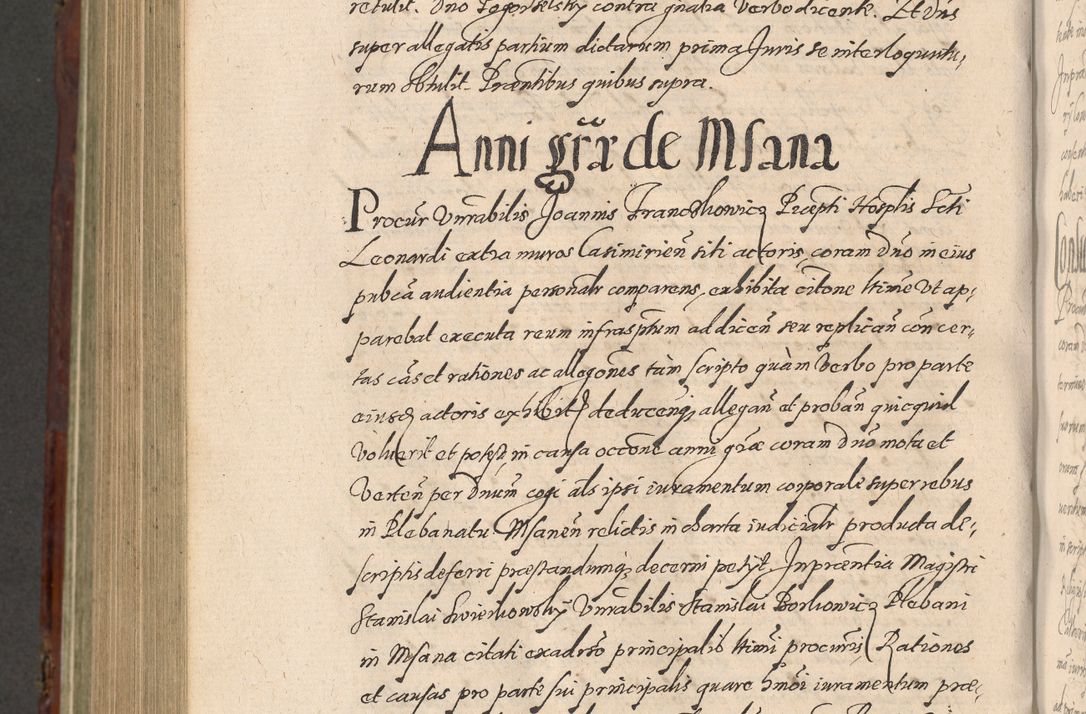 retulit. Dno Pogorzelsky contra gnalia verbo dicente. Et Dns
super allegatis partium dictarum prima Juris se interloquutu,
rum obtulit Prntibus quibus supra.
Anni grāæ de Msana
Procur Vnrabilis Joannis Franckowicz Præpti Hosplis Scti
Leonardi extra muros Casimirien siti actoris, coram Dno in eius
pubca audientia personalr comparens, exhibita citone ltime vt ap,
parebat executa reum infrasptum ad dicen seu replican con cer,
tas cās et rationes ac allegones tam scripto quàm verbo pro parte
eiusq actoris exhibit deducenq allegan et proban quicquid
voluerit et potest, in causa occone anni græ coram Dno mota et
Verten per Dnum cogi als ipsi iuramentum corporale super rebus
in Plebanatu Msanen relictis in charta iudicialr producta de,
scriptis deferri præstandumq decerni petyt, In præntia Magistri
Stanislai Swierkowsky Vnrabilis Stanislai Borkowicz Plebani
in Msana citati ex adrso principalis ltimi procuris, Rationes
et causas pro parte sui principalis quare hmoi iuramentum præ,